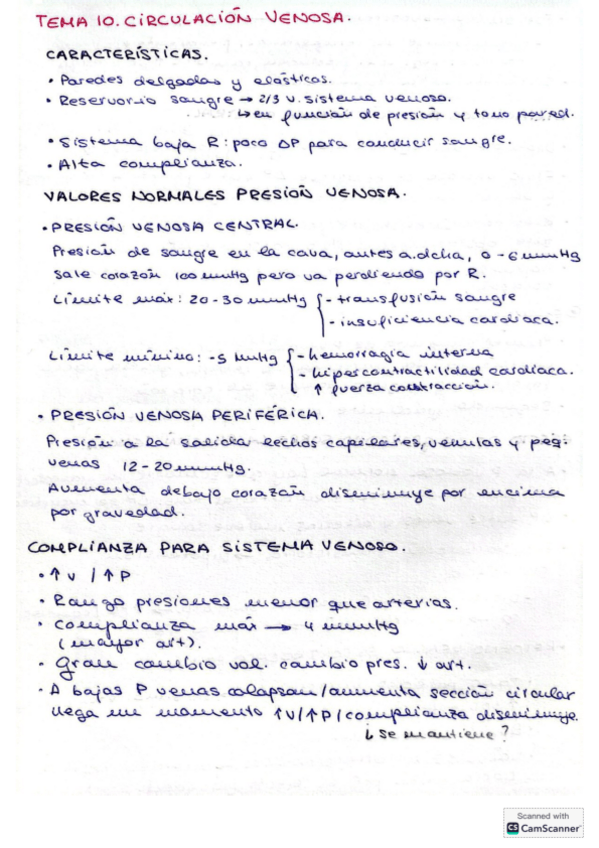 TEMA 10. CIRCULACIÓN VENOSA.
CARACTERÍSTICAS.
• Paredes delgadas y elásticas.
• Reservorio sangre → 2/3 v. sistema venoso.
↳ en función de presión y tono pared.
• Sistema baja R: poco ΔP para conducir sangre.
• Alta complianza.
VALORES NORMALES PRESIÓN VENOSA.
• PRESIÓN VENOSA CENTRAL.
Presión de sangre en la cava, antes a. dcha, 0 - 6 mmHg
Sale corazón 100 mmHg pero va perdiendo por R.
Límite máx: 20-30 mmHg { - transfusión sangre
- insuficiencia cardíaca.
Límite mínimo: -5 mmHg { - hemorragia interna
- hipercontractilidad cardíaca.
↑ fuerza contracción.
• PRESIÓN VENOSA PERIFÉRICA.
Presión a la salida lechos capilares, vénulas y peq.
venas 12-20 mmHg.
Aumenta debajo corazón disminuye por encima
por gravedad.
COMPLIANZA PARA SISTEMA VENOSO.
• ↑V / ↑P
• Rango presiones menor que arterias.
• Complianza máx → 4 mmHg
(mayor art).
• Gran cambio vol. cambio pres. ↓ art.
• A bajas P venas colapsan/aumenta sección circular
llega un momento ↑V/↑P/complianza disminuye.
↓ se mantiene?
Scanned with
CS CamScanner